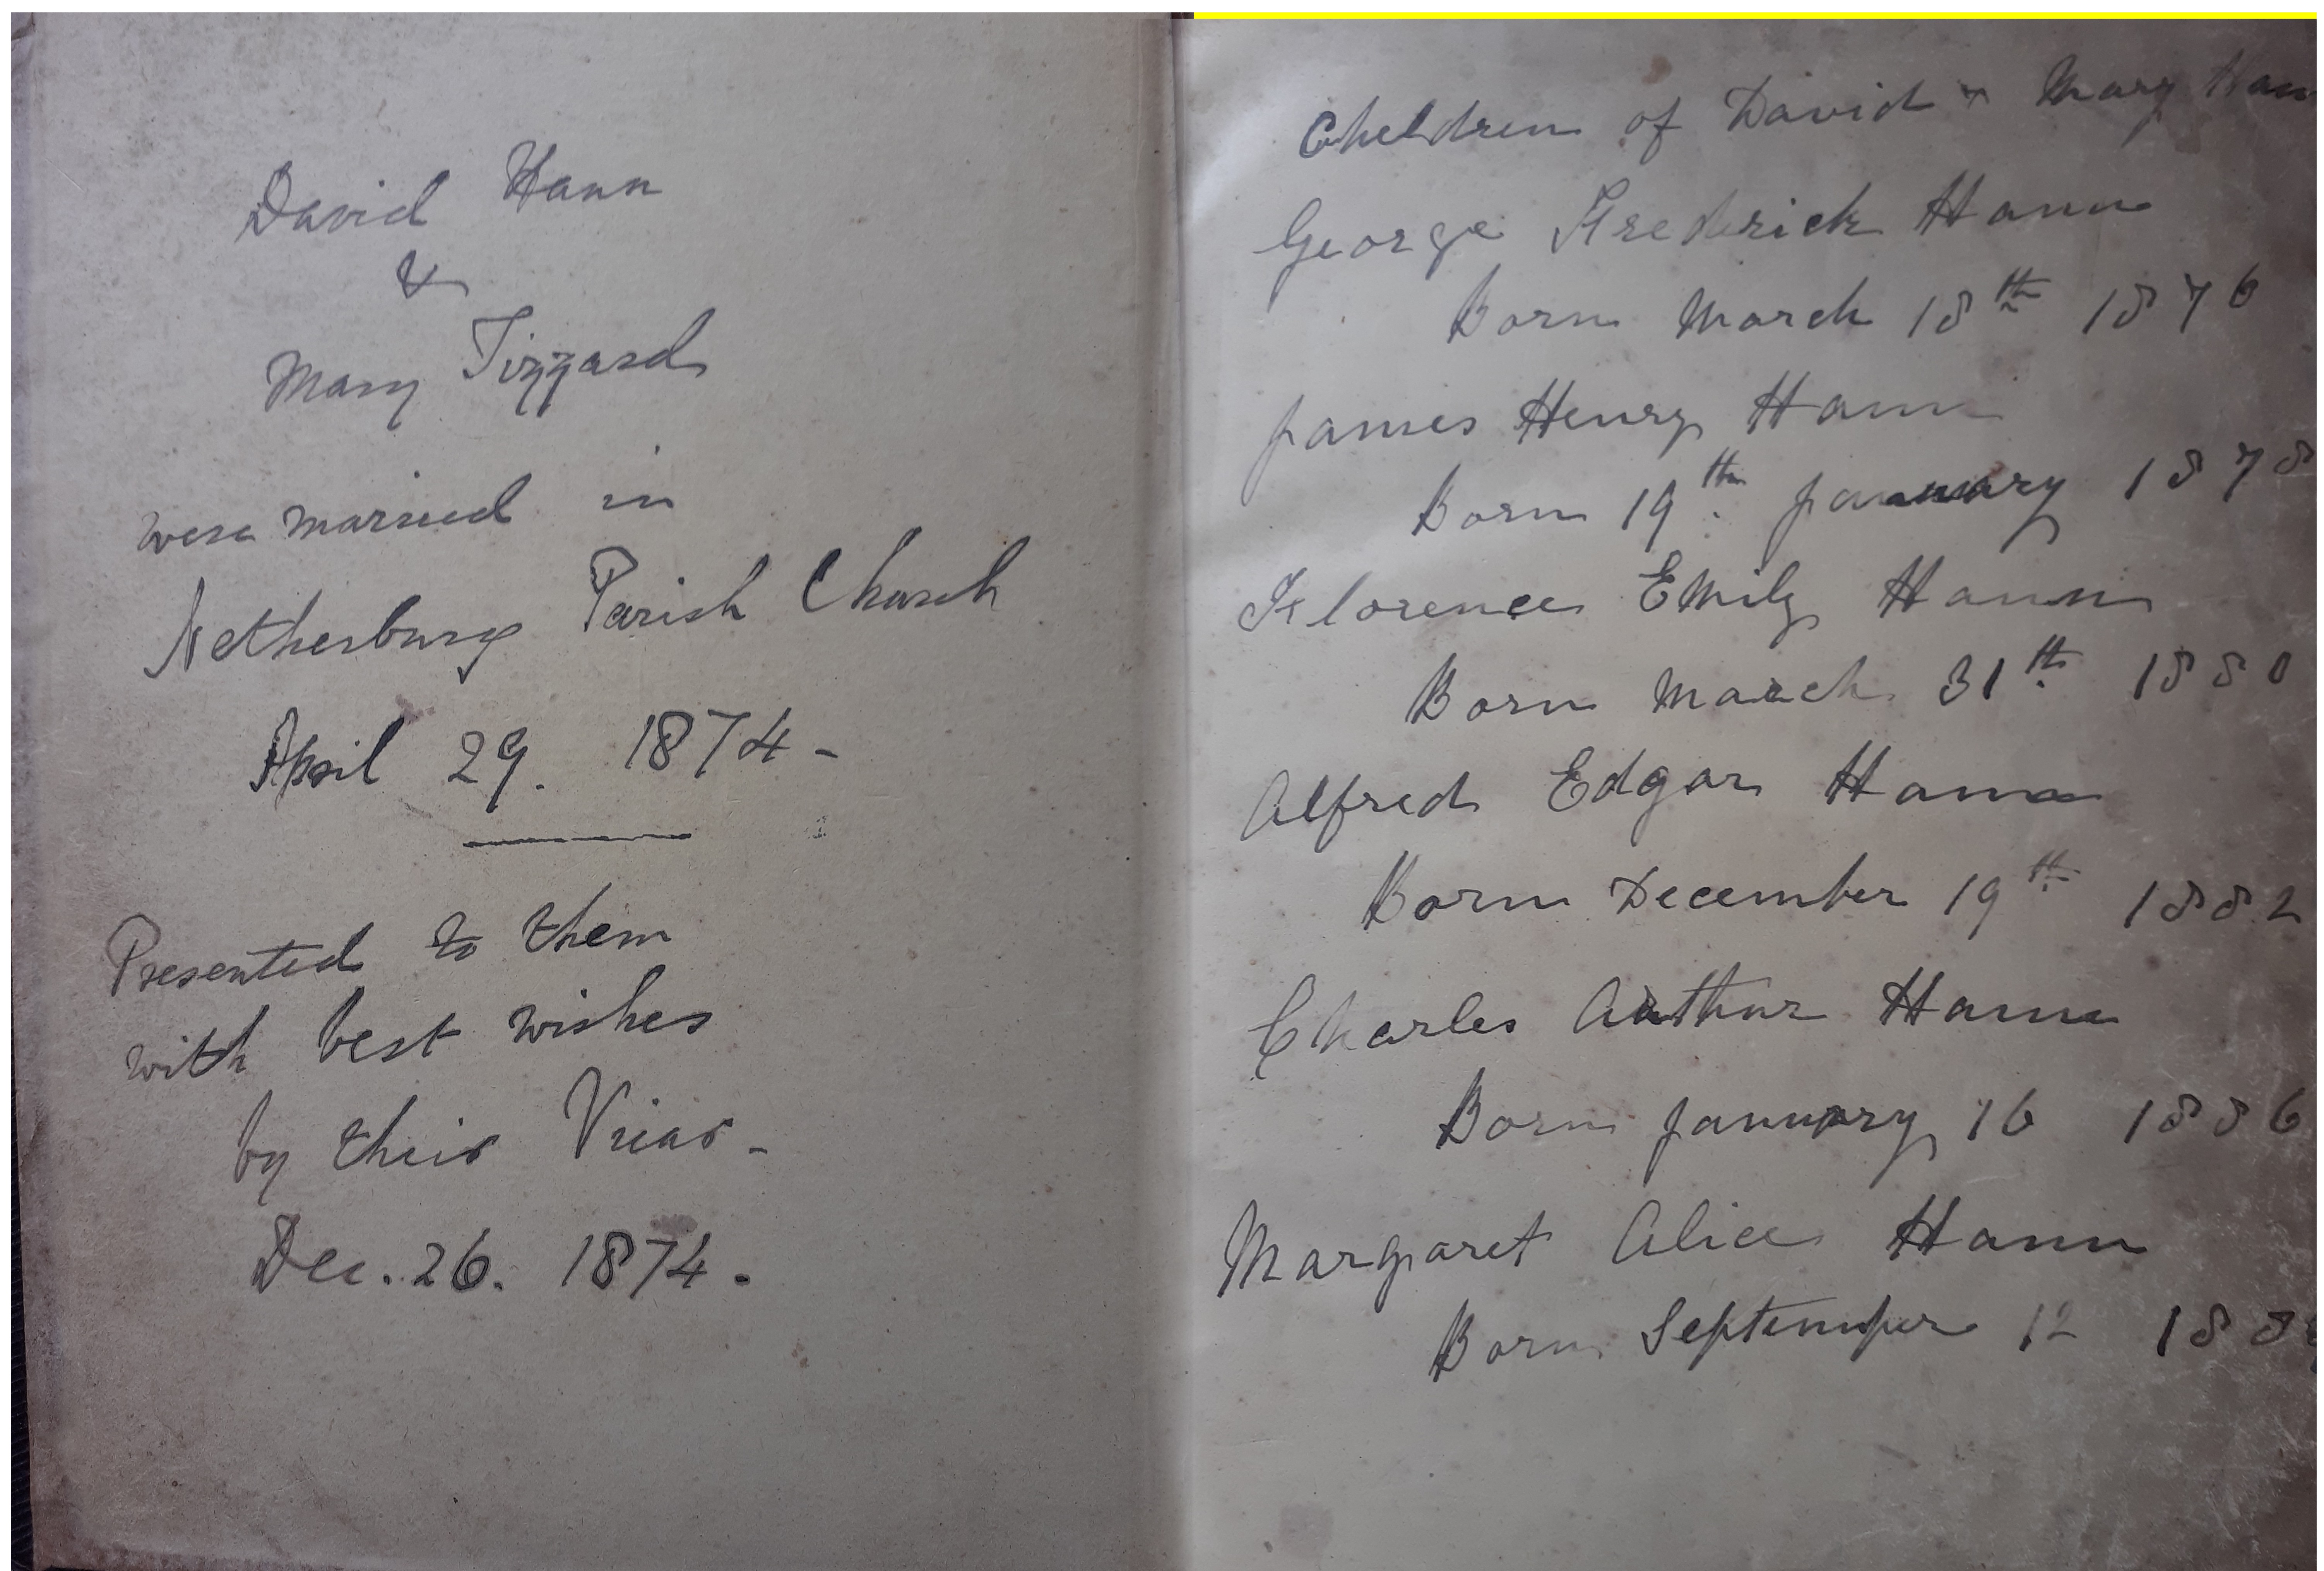 David Hann
&
Mary Tizzard
were married in
Netherbury Parish Church
April 29. 1874 -
Presented to them
with best wishes
by their Vicar -
Dec. 26. 1874.
Children of David & Mary Hann
George Frederick Hann
Born March 18th 1876
James Henry Hann
Born 19th January 1878
Florence Emily Hann
Born March 31th 1880
Alfred Edgar Hann
Born December 19th 1882
Charles Arthur Hann
Born January 16 1886
Margaret Alice Hann
Born September 12